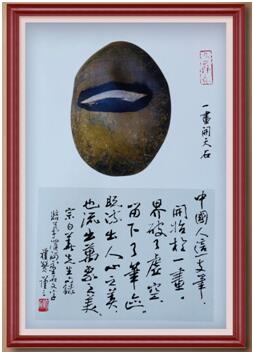 一画開天石
中國人這支筆，
開始於一畫，
界破了虛空，
留下了筆迹，
既流出人心之美，
也流出萬象之美。
宗白華先生錄